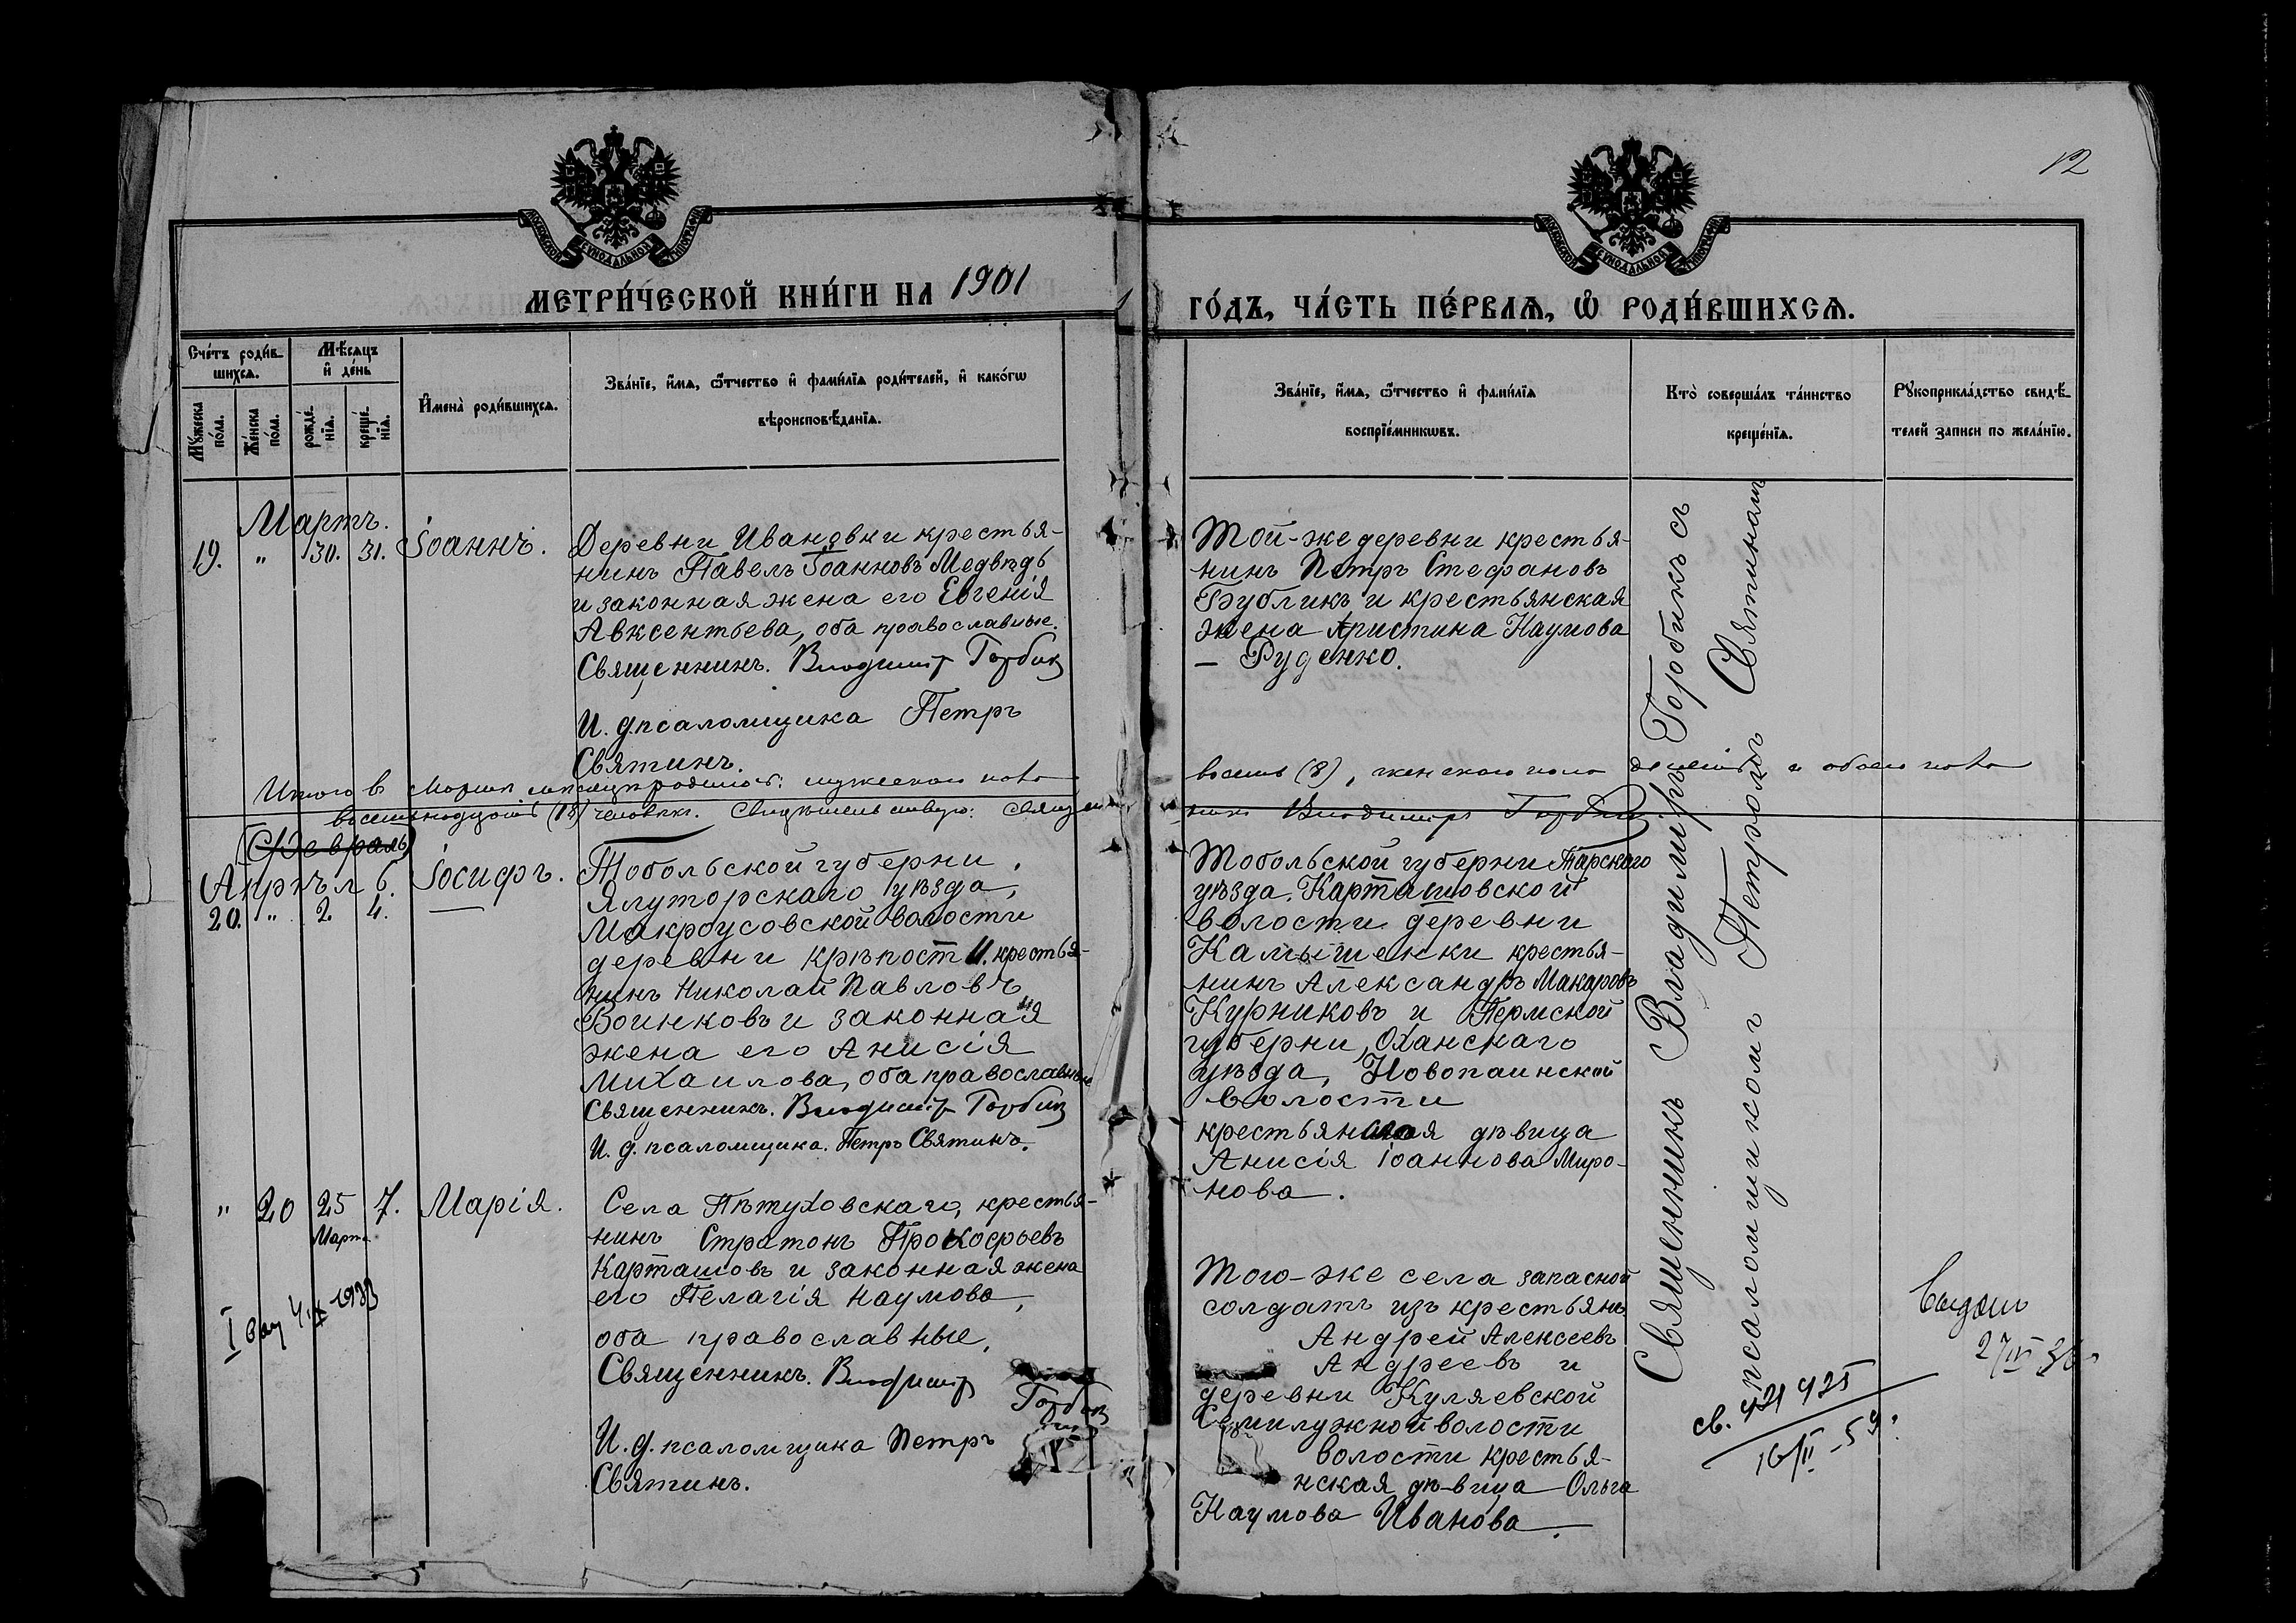 12
МОСКОВСКОЙ СѴНОДАЛЬНОЙ ТИПОГРАФІИ
МОСКОВСКОЙ СѴНОДАЛЬНОЙ ТИПОГРАФІИ
МЕТРИ́ЧЕСКОЙ КНИ́ГИ НА 1901
ГО́ДЪ, ЧА́СТЬ ПЕ́РВАѦ, Ѡ҆ РОДИ́ВШИХСѦ.
Сче́тъ роди́в-
шихсѧ.
Мѣ́сѧцъ
и҆ де́нь
Мꙋ́жеска
по́ла.
Же́нска
по́ла.
рожде́-
нїѧ.
креще́-
нїѧ.
И҆мена̀ роди́вшихсѧ.
Зва́нїе, и҆́мѧ, ѻ҆́тчество и҆ фами́лїѧ роди́телей, и҆ како́гѡ
вѣроисповѣ́данїѧ.
Зва́нїе, и҆́мѧ, ѻ҆́тчество и҆ фами́лїѧ
воспрїе́мникѡвъ.
Кто̀ соверша́лъ та́инство
креще́нїѧ.
Рꙋкоприкла́дство свидѣ́-
телей записи по жела́нїю.
Мартъ.
19. " 30. 31. Іоаннъ.
Деревни Ивановки крестья-
нинъ Павелъ Іоанновъ Медвѣдь
и законная жена его Евгенія
Авксентьева, оба православные.
Священникъ. Владиміръ Горбик
И. д. псаломщика Петръ
Святинъ.
Той-же деревни крестья-
нинъ Петръ Стефановъ
Бубликъ и крестьянская
жена Христина Наумова
– Руденко.
Священникъ Владиміръ Горобикъ съ
псаломщикомъ Петромъ Святинымъ
Итого в мартѣ мѣсяцѣ родилось: мужескаго пола
восемь (8), женскаго пола десять а обоего пола
восемьнадцать (18) человѣкъ. Свидѣтельствую: священ
никъ Владиміръ Горбик
(Февраль)
Апрѣль
20. " 2. 4. Іосифъ.
Тобольской губерни,
Ялуторскаго уѣзда,
Макроусовской волости
деревни крѣпости. крестья-
нинъ Николай Павловъ
Воинковъ и законная
жена его Анисія
Михаилова, оба православные
Священникъ. Владиміръ Горбик
И. д. псаломщика. Петръ Святинъ.
Тобольской губерни Тарскаго
уѣзда, Карташовской
волости деревни
Камышенки крестья-
нинъ Александръ Макаровъ
Курниковъ и Пермской
губерни, Оханскаго
уѣзда, Новопаинской
волости
крестьянская дѣвица
Анисія Іоаннова Миро-
нова.
" 20 25 7. Марія.
Марта
Села Пѣтуховскаго, крестья-
нинъ Стратонъ Прокофьевъ
Карташовъ и законная жена
его Пелагія Наумова,
оба православные.
Священникъ. Владиміръ
Горбик
И. д. псаломщика Петръ
Святинъ.
Того-же села запасной
солдатъ изъ крестьянъ
Андрей Алексеевъ
Андреевъ и
деревни Куляевской
Семилужной волости
волости крестья-
нская дѣвица Ольга
Наумова Иванова.
1933
св. 421 425
16/II-59.
Выдан
27/IV 36